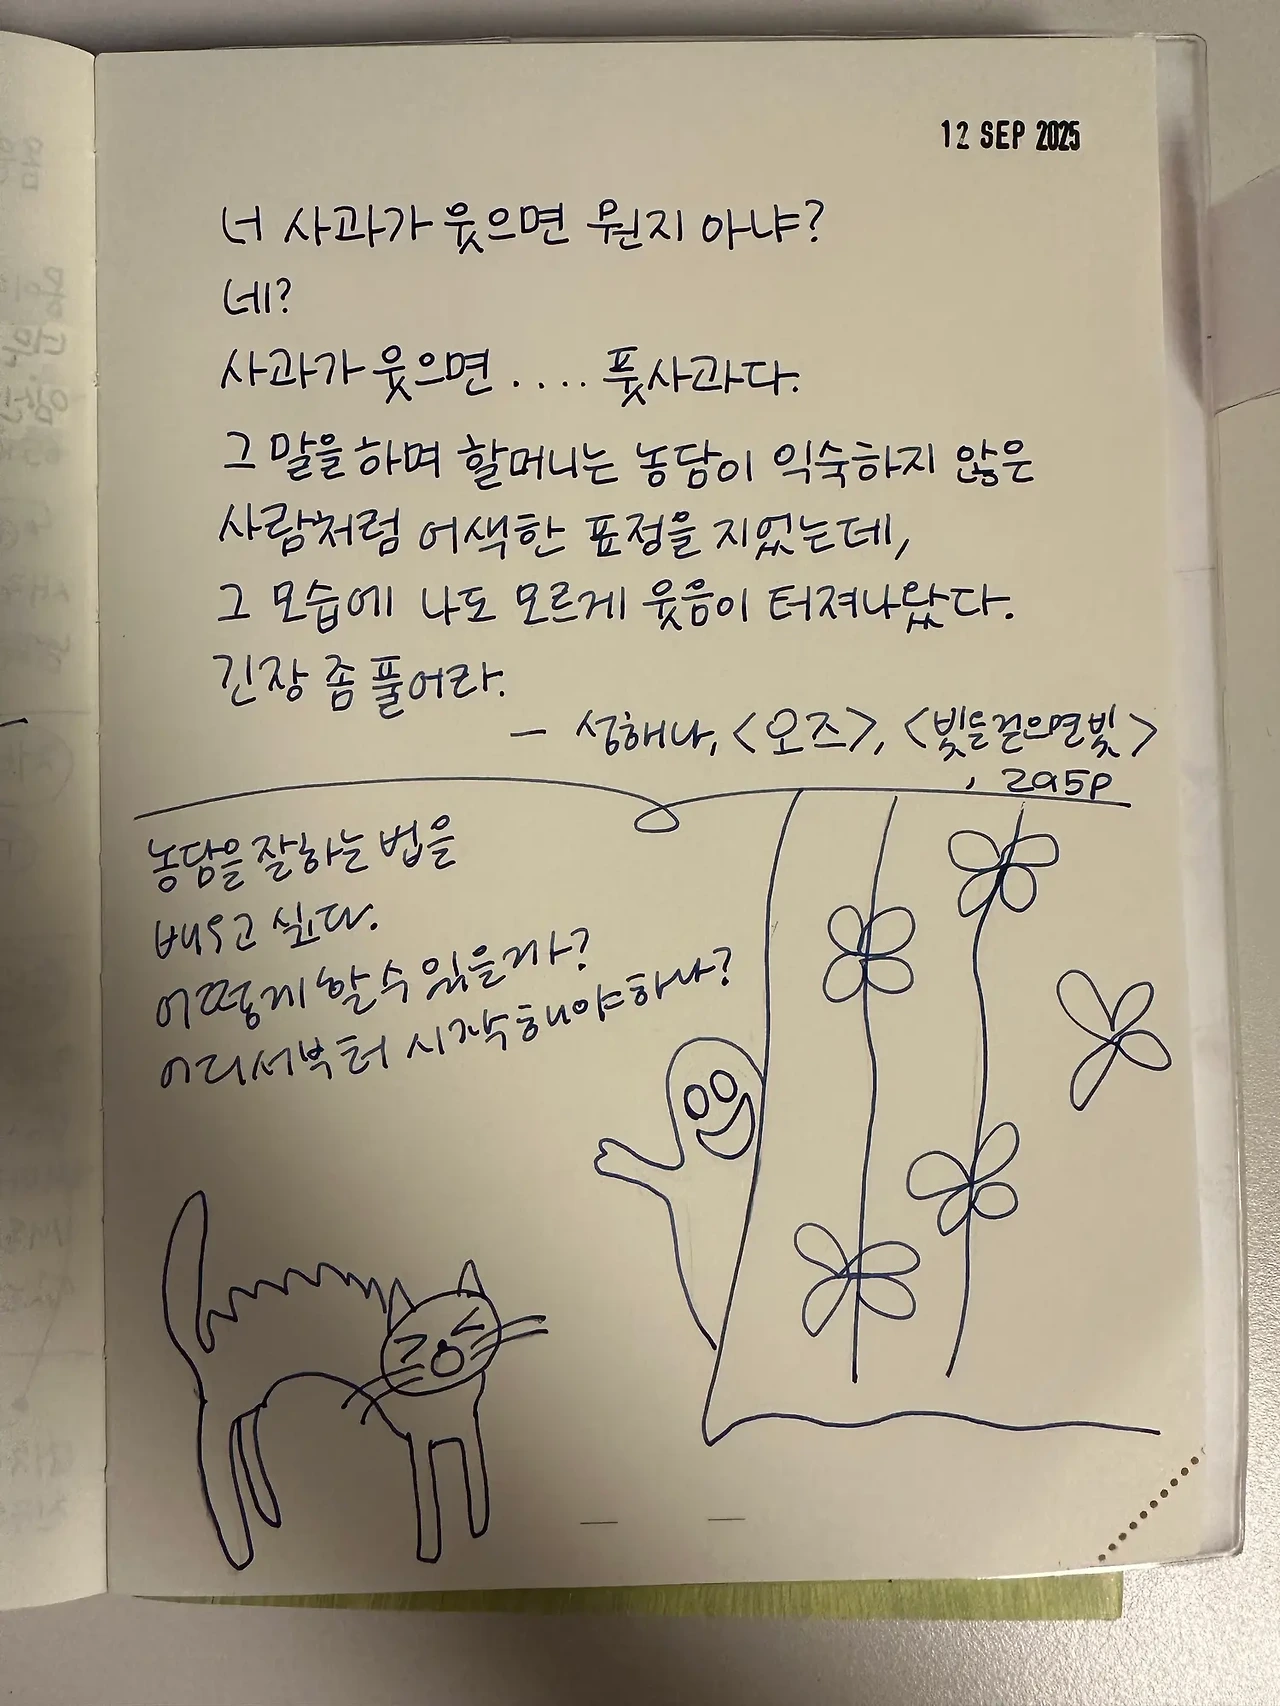 12 SEP 2025
너 사과가 웃으면 뭔지 아냐?
네?
사과가 웃으면 .... 풋사과다.
그 말을 하며 할머니는 농담이 익숙하지 않은
사람처럼 어색한 표정을 지었는데,
그 모습에 나도 모르게 웃음이 터져나왔다.
긴장 좀 풀어라.
— 성해나, <오즈>, <빛을 걷으면 빛>
, 295p
농담을 잘하는 법을
배우고 싶다.
어떻게 할 수 있을까?
어디서부터 시작해야하나?